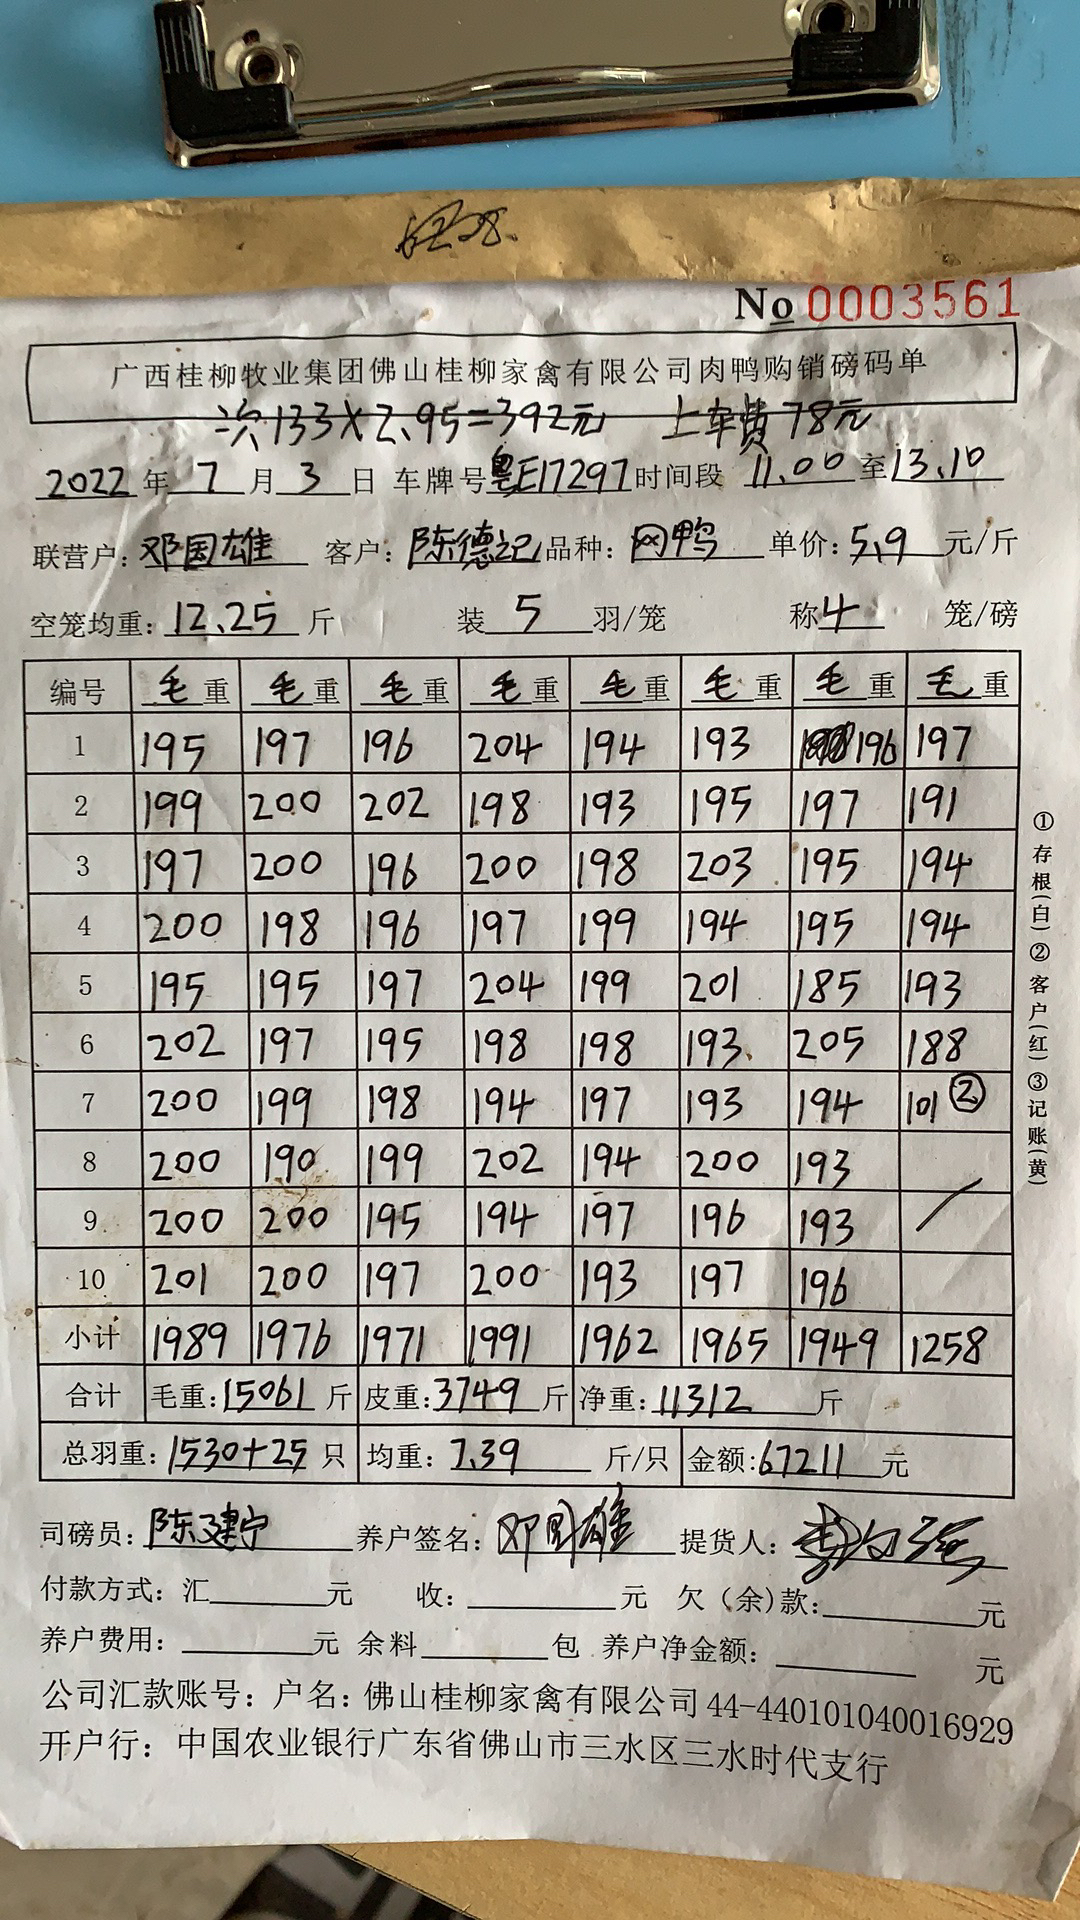 No 0003561
广西桂柳牧业集团佛山桂柳家禽有限公司肉鸭购销磅码单
次133×2.95=392元 上车费78元
2022年7月3日 车牌号粤E17297时间段 11.00至13.10
联营户:邓国雄 客户:陈德记 品种:网鸭 单价:5.9元/斤
空笼均重:12.25斤 装5羽/笼 称4笼/磅
编号 毛重 毛重 毛重 毛重 毛重 毛重 毛重 毛重
1 195 197 196 204 194 193 196 197
2 199 200 202 198 193 195 197 191
3 197 200 196 200 198 203 195 194
4 200 198 196 197 199 194 195 194
5 195 195 197 204 199 201 185 193
6 202 197 195 198 198 193 205 188
7 200 199 198 194 197 193 194 101②
8 200 190 199 202 194 200 193
9 200 200 195 194 197 196 193
10 201 200 197 200 193 197 196
小计 1989 1976 1971 1991 1962 1965 1949 1258
合计 毛重:15061斤 皮重:3749斤 净重:11312斤
总羽重:1530+25只 均重:7.39斤/只 金额:67211元
司磅员:陈建宁 养户签名:邓国雄 提货人:
付款方式:汇 元 收: 元 欠(余)款: 元
养户费用: 元 余料 包 养户净金额: 元
公司汇款账号:户名:佛山桂柳家禽有限公司 44-440101040016929
开户行:中国农业银行广东省佛山市三水区三水时代支行
①存根(白)②客户(红)③记账(黄)